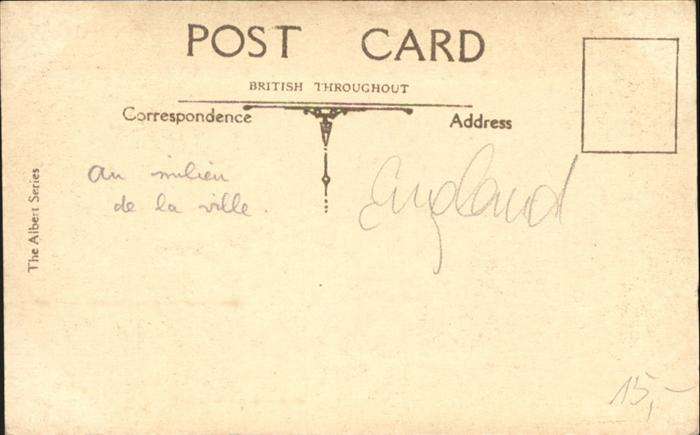 POST CARD
BRITISH THROUGHOUT
Correspondence
Address
The Albert Series
au milieu
de la ville.
England
15,-